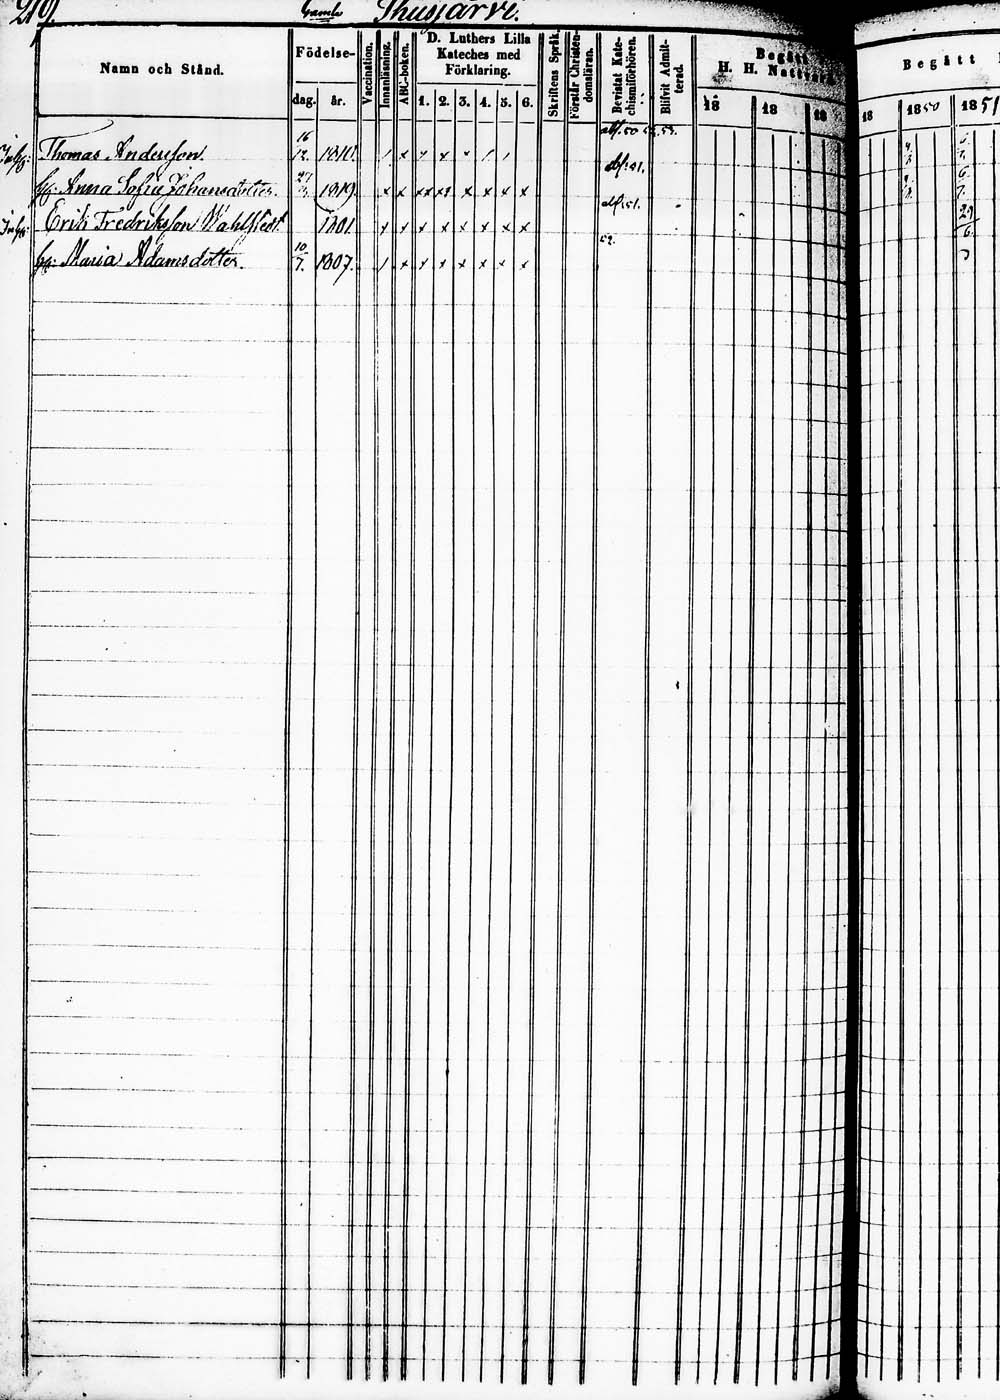 219.
Gamle Thusjärvi.
Namn och Stånd.
Födelse-
dag. år.
Vaccination.
Innanläsning.
ABC-boken.
D. Luthers Lilla
Kateches med
Förklaring.
1. 2. 3. 4. 5. 6.
Skriftens Språk.
Förstår Christen-
domsläran.
Bevistat Kate-
chismiförhören.
Blifvit Admit-
terad.
Begått
H. H. Nattvard
18 18 18
Begått
18 1850 1851
Thomas Andersson 16/12. 1810. abs. 50 52, 53.
h: Anna Sofia Johansdotter. 1819. abs: 51.
Erik Fredriksson Wahlstedt 1801 abs. 51.
h: Maria Adamsdotter. 10/7. 1807. 52.